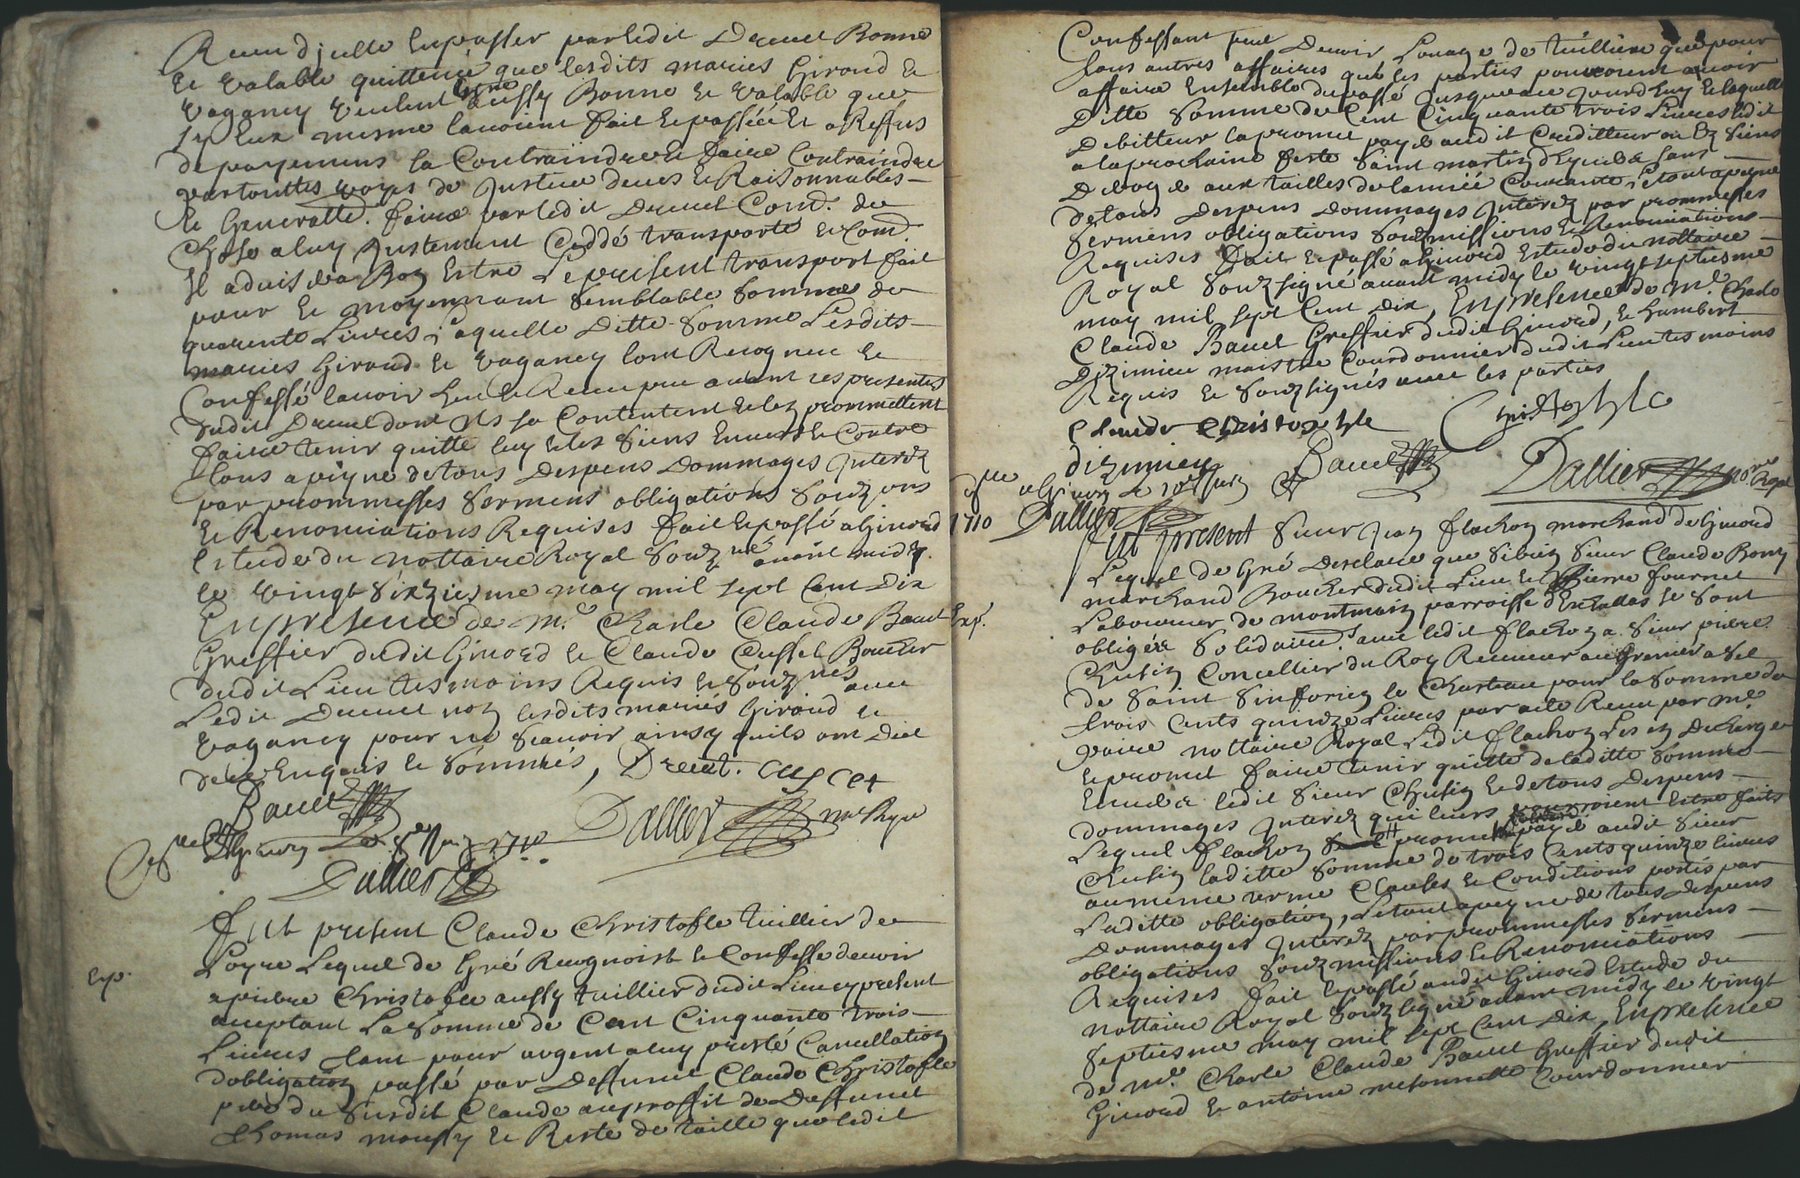 Receu d'jcelle En passer par ledit Dreuet Bonne
Et Valable quittance que lesdits mariés Giraud Et
Vagancy Veulent Estre Aussy Bonne Et Valable que
sy Eux mesme lauoient fait Et passée Et a Reffus
de payement la Contraindre Et faire Contraindre
par touttes voyes de Justice deues Et Raisonnables
Et Generallem. faire par ledit Dreuet Comd. de
Chose a luy Justement Ceddé transporté Et Comd.
Il aduisera Bon Estre Le present transport fait
pour Et moyennant semblable somme de
quarente Liures, Laquelle Ditte somme Lesdits
mariés Giraud Et Vagancy l'ont Recogneu Et
Confessé l'auoir Heu Et Receu peu auant ces presentes
dudit Dreuet dont Ils se Contentent Et l'en promettent
faire tenir quitte luy Et les siens Enuers Et Contre
tous a peyne de tous Despens Dommages Interez
par promesses sermens obligations souz ons
Et Renonciations Requises fait Et passé a Giuord
Estude du Nottaire Royal souz né auant midy
le Vingt sixziesme may mil sept Cent Dix
En presence de Me Charle Claude Bauet
Greffier dudit Giuord Et Claude Cusset Boucher
dudit Lieu tesmoins Requis Et souz nés auec
Ledit Dreuet non lesdits mariés Giraud Et
Vagancy pour ne scauoir ainsy quils ont Dit
de ce Enquis Et sommés, Dreuet. Cuscet
Bauet
Dallier no.re Royal
C.lle a Giuors Le 8e Juin 1710
Dallier
Fut present Claude Christofle tuillier de
Loyre Lequel de Gré Recognoist Et Confesse deuoir
a pierre Christofle aussy tuillier dudit Lieu cy present
acceptant La somme de Cent Cinquante trois
Liures tant pour argent a luy presté Cancellation
d'obligation passé par Deffunct Claude Christofle
pere du susdit Claude au proffit de Deffunct
Thomas Moussy Et Reste de taille que ledit
Exp.
Confessant peut Deuoir Louage de tuilliere que pour
tous autres affaires que les parties pouuoient auoir
affaire Ensemble du passé Jusques a ce Jourd'huy Et laquelle
Ditte somme de Cent Cinquante trois Liures ledit
Debitteur la promet payé audit Crediteur ou Ez siens
a la prochaine feste saint martin d'hyuer sans
aux tailles de l'année Courante, Le tout a peyne
de tous Despens Dommages Interez par promesses
sermens obligations souzmissions Et Renonciations
Requises fait Et passé a Giuord Estude du Nottaire
Royal souzsigné auant midy le Vingt septiesme
may mil sept Cent Dix, En presence de Me Charle
Claude Bauet Greffier dudit Giuord, Et humbert
Dizimieu maistre Courdonnier dudit Lieu tesmoins
Requis Et souzsignés auec les parties
Claude christophle Christophle
dizimieu Bauet Dallier no.re Royal
C.lle a Giuors Le 10e Juin
1710 Dallier
Exp.
Fut present sieur Jean flachon marchand de Giuord
Lequel de Gré Desclare que sibien sieur Claude Bony
marchand Boucher dudit Lieu Et Pierre fournet
Laboureur de montmain parroisse d'Eschallas se sont
obligés solidairem.t auec ledit flachon a sieur pierre
Chusin Conceillier du Roy Receueur au Grenier a sel
de Saint Sinforien le Chasteau pour la somme de
trois Cents quinze Liures par acte Receu par Me
nottaire Royal Ledit flachon Les en Decharge
Et promet faire tenir quitte de laditte somme
Enuer ledit sieur Chusin Et de tous Despens
dommages Interez qui leurs pourroient Estre faits
Lequel flachon promet payé audit sieur
Chusin laditte somme de trois Cents quinze liures
au meme terme Clauses Et Conditions portés par
Laditte obligation, Le tout a peyne de tous despens
Dommages Interez par promesses sermens
obligations souzmissions Et Renonciations
Requises fait Et passé audit Giuord Estude du
nottaire Royal souzsigné auant midy le Vingt
septiesme may mil sept Cent Dix, En presence
de Me Charle Claude Bauet Greffier dudit
Giuord Et antoine Courdonnier